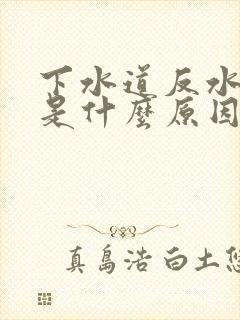 下水道反水
是什麼原因
真島浩 白土悠